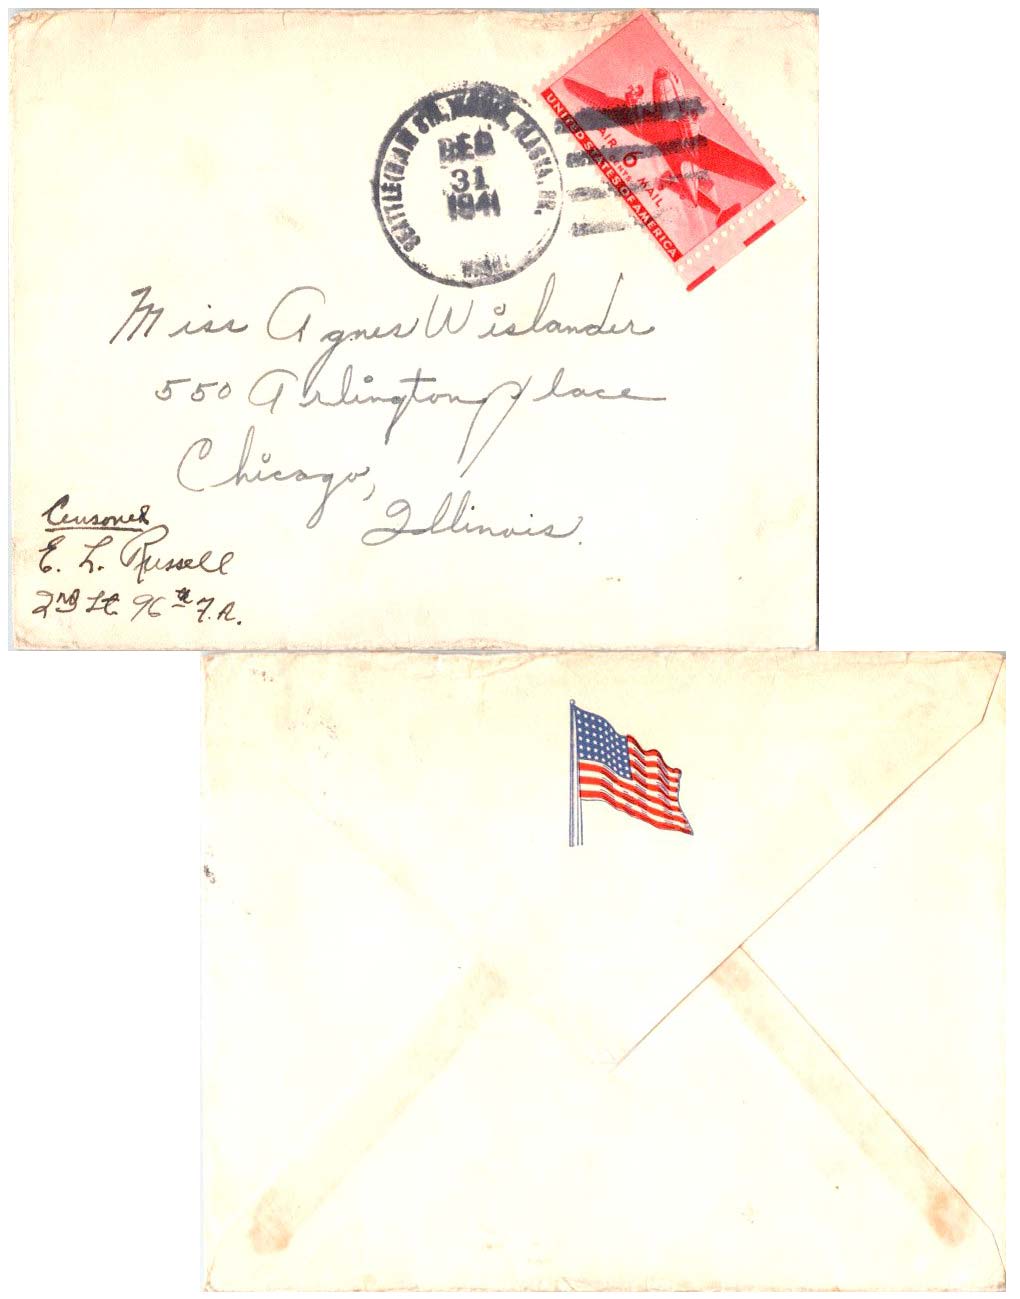 SEATTLE
DEC
31
1941
WASH.
UNITED STATES OF AMERICA
AIR 6 MAIL
CENTS
Miss Agnes Wislander
550 Arlington place
Chicago,
Illinois.
Censored
E. L. Russell
2nd Lt. 96th F.A.